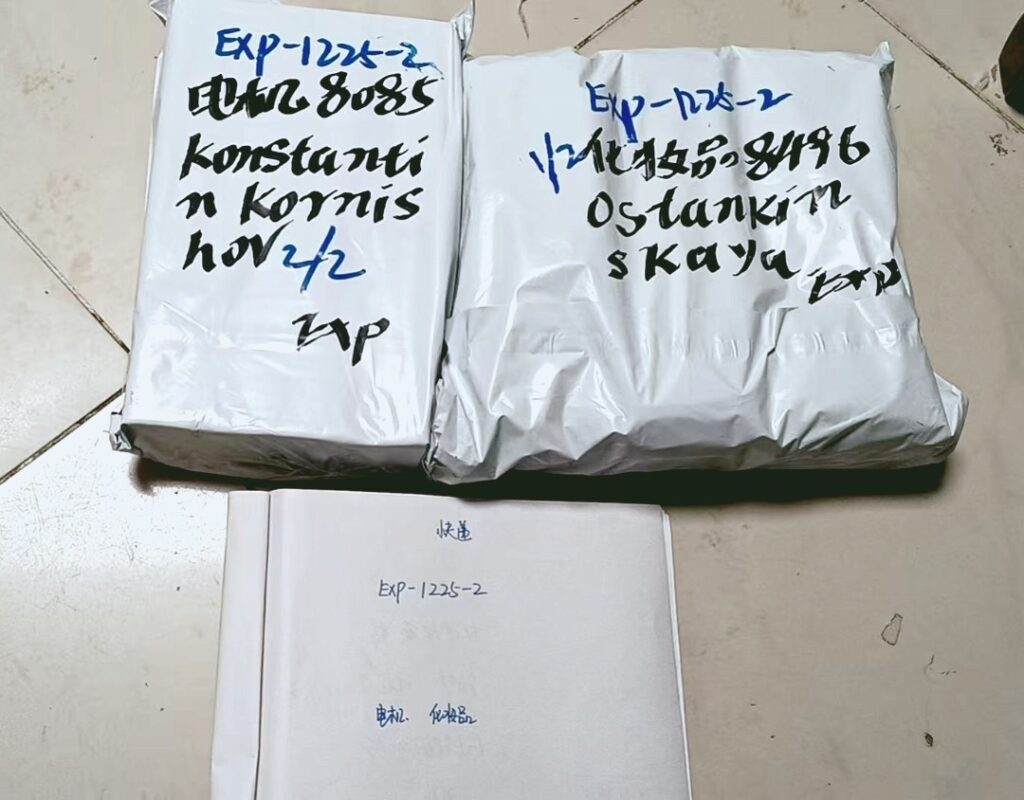 Exp-1225-2
电机8085
Konstanti
n Kornis
hov 2/2
Exp
Exp-1225-2
1/2 化妆品8496
Ostankin
skaya
Exp
快递
Exp-1225-2
电机 化妆品